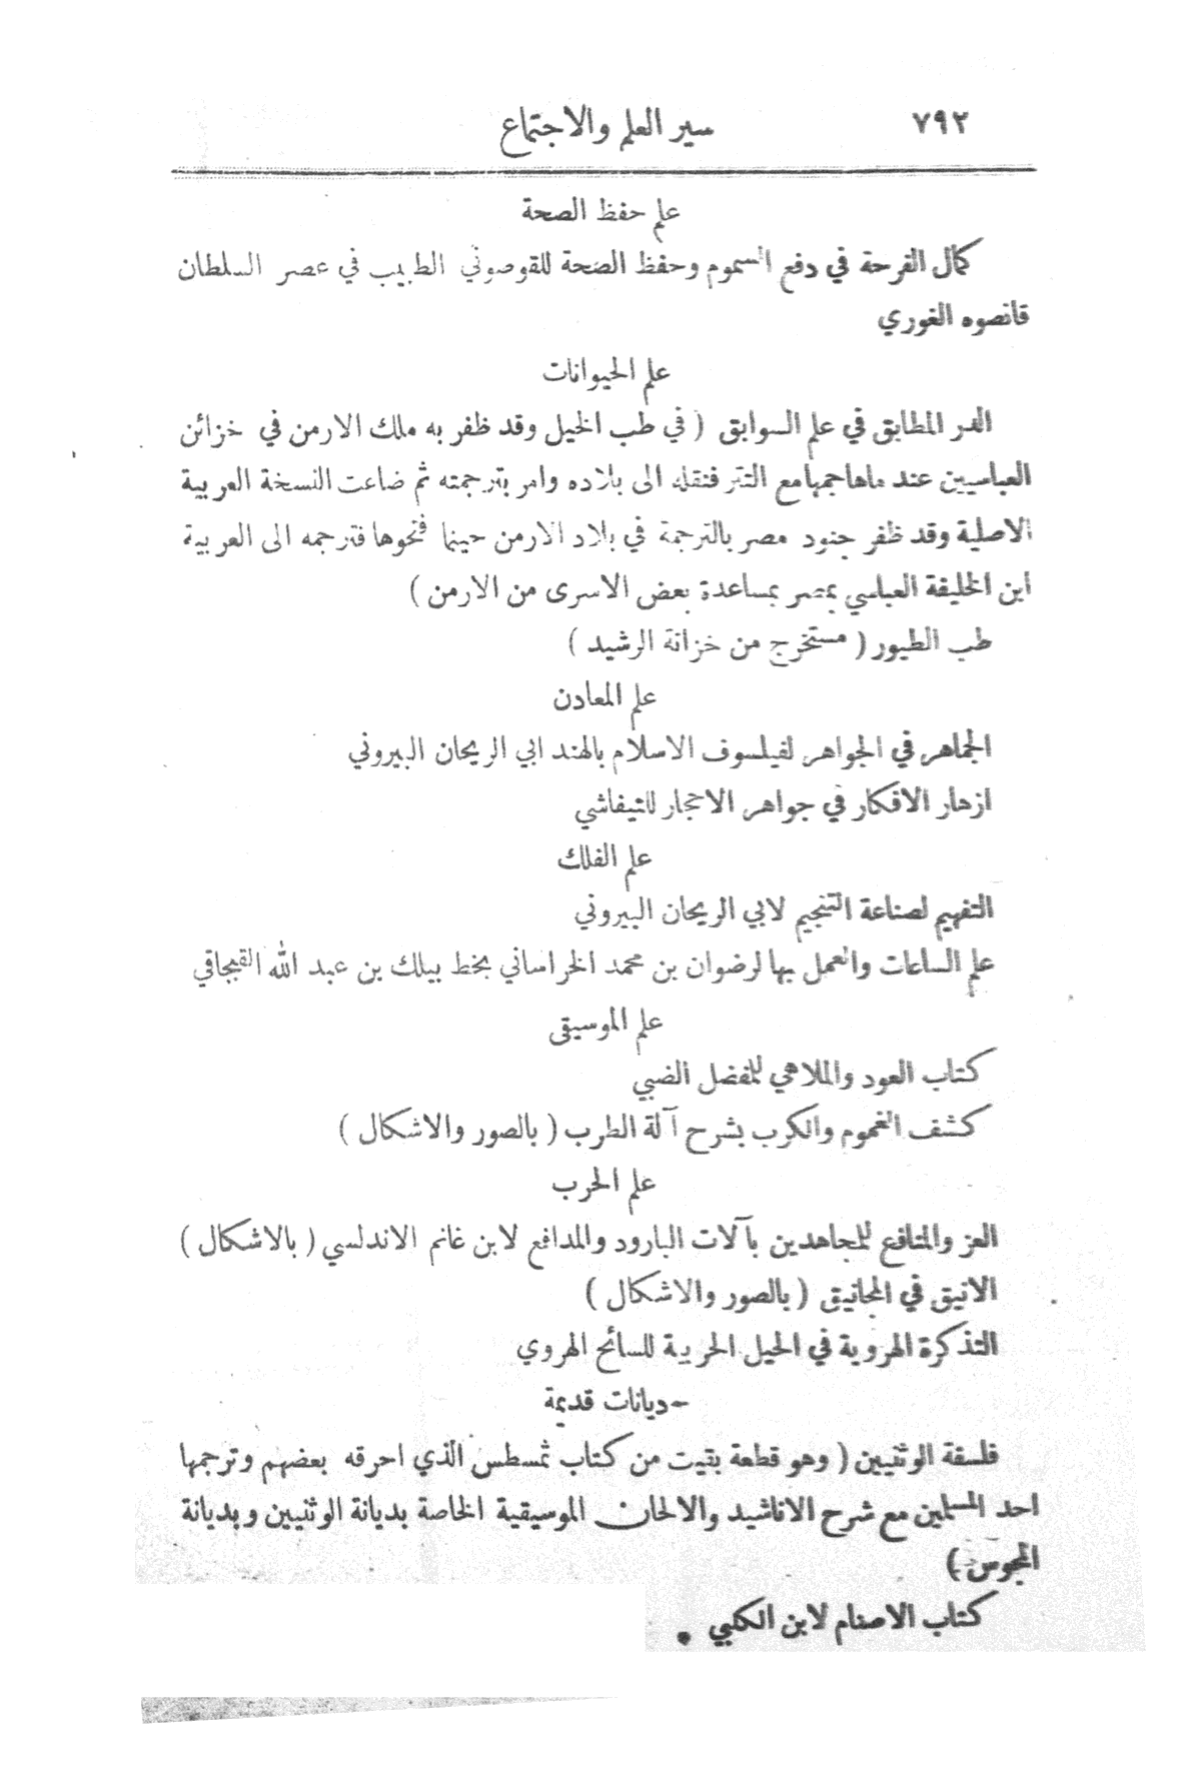 ٧٩٢
سير العلم والاجتماع
علم حفظ الصحة
كمال الفرحة في دفع السموم وحفظ الصحة للقوصوني الطبيب في عصر السلطان
قانصوه الغوري
علم الحيوانات
الدر المطابق في علم السوابق ( في طب الخيل وقد ظفر به ملك الارمن في خزائن
العباسيين عند ماهاجمها مع التتر فنقله الى بلاده وامر بترجمته ثم ضاعت النسخة العربية
الاصلية وقد ظفر جنود مصر بالترجمة في بلاد الارمن حينما فتحوها فترجمه الى العربية
ابن الخليفة العباسي بمصر بمساعدة بعض الاسرى من الارمن )
طب الطيور ( مستخرج من خزانة الرشيد )
علم المعادن
الجماهر في الجواهر لفيلسوف الاسلام بالهند ابي الريحان البيروني
ازهار الافكار في جواهر الاحجار للتيفاشي
علم الفلك
التفهيم لصناعة التنجيم لابي الريحان البيروني
علم الساعات والعمل بها لرضوان بن محمد الخراساني بخط بيلك بن عبد الله القبجاقي
علم الموسيقى
كتاب العود والملاهي للمفضل الضبي
كشف الغموم والكرب بشرح آلة الطرب ( بالصور والاشكال )
علم الحرب
العز والمنافع للمجاهدين بآلات البارود والمدافع لابن غانم الاندلسي ( بالاشكال )
الانيق في المجانيق ( بالصور والاشكال )
التذكرة الهروية في الحيل الحربية للسائح الهروي
-ديانات قديمة
فلسفة الوثنيين ( وهو قطعة بقيت من كتاب ثمسطس الذي احرقه بعضهم وترجمها
احد المسلمين مع شرح الاناشيد والالحان الموسيقية الخاصة بديانة الوثنيين وبديانة
المجوس )
كتاب الاصنام لابن الكلبي .